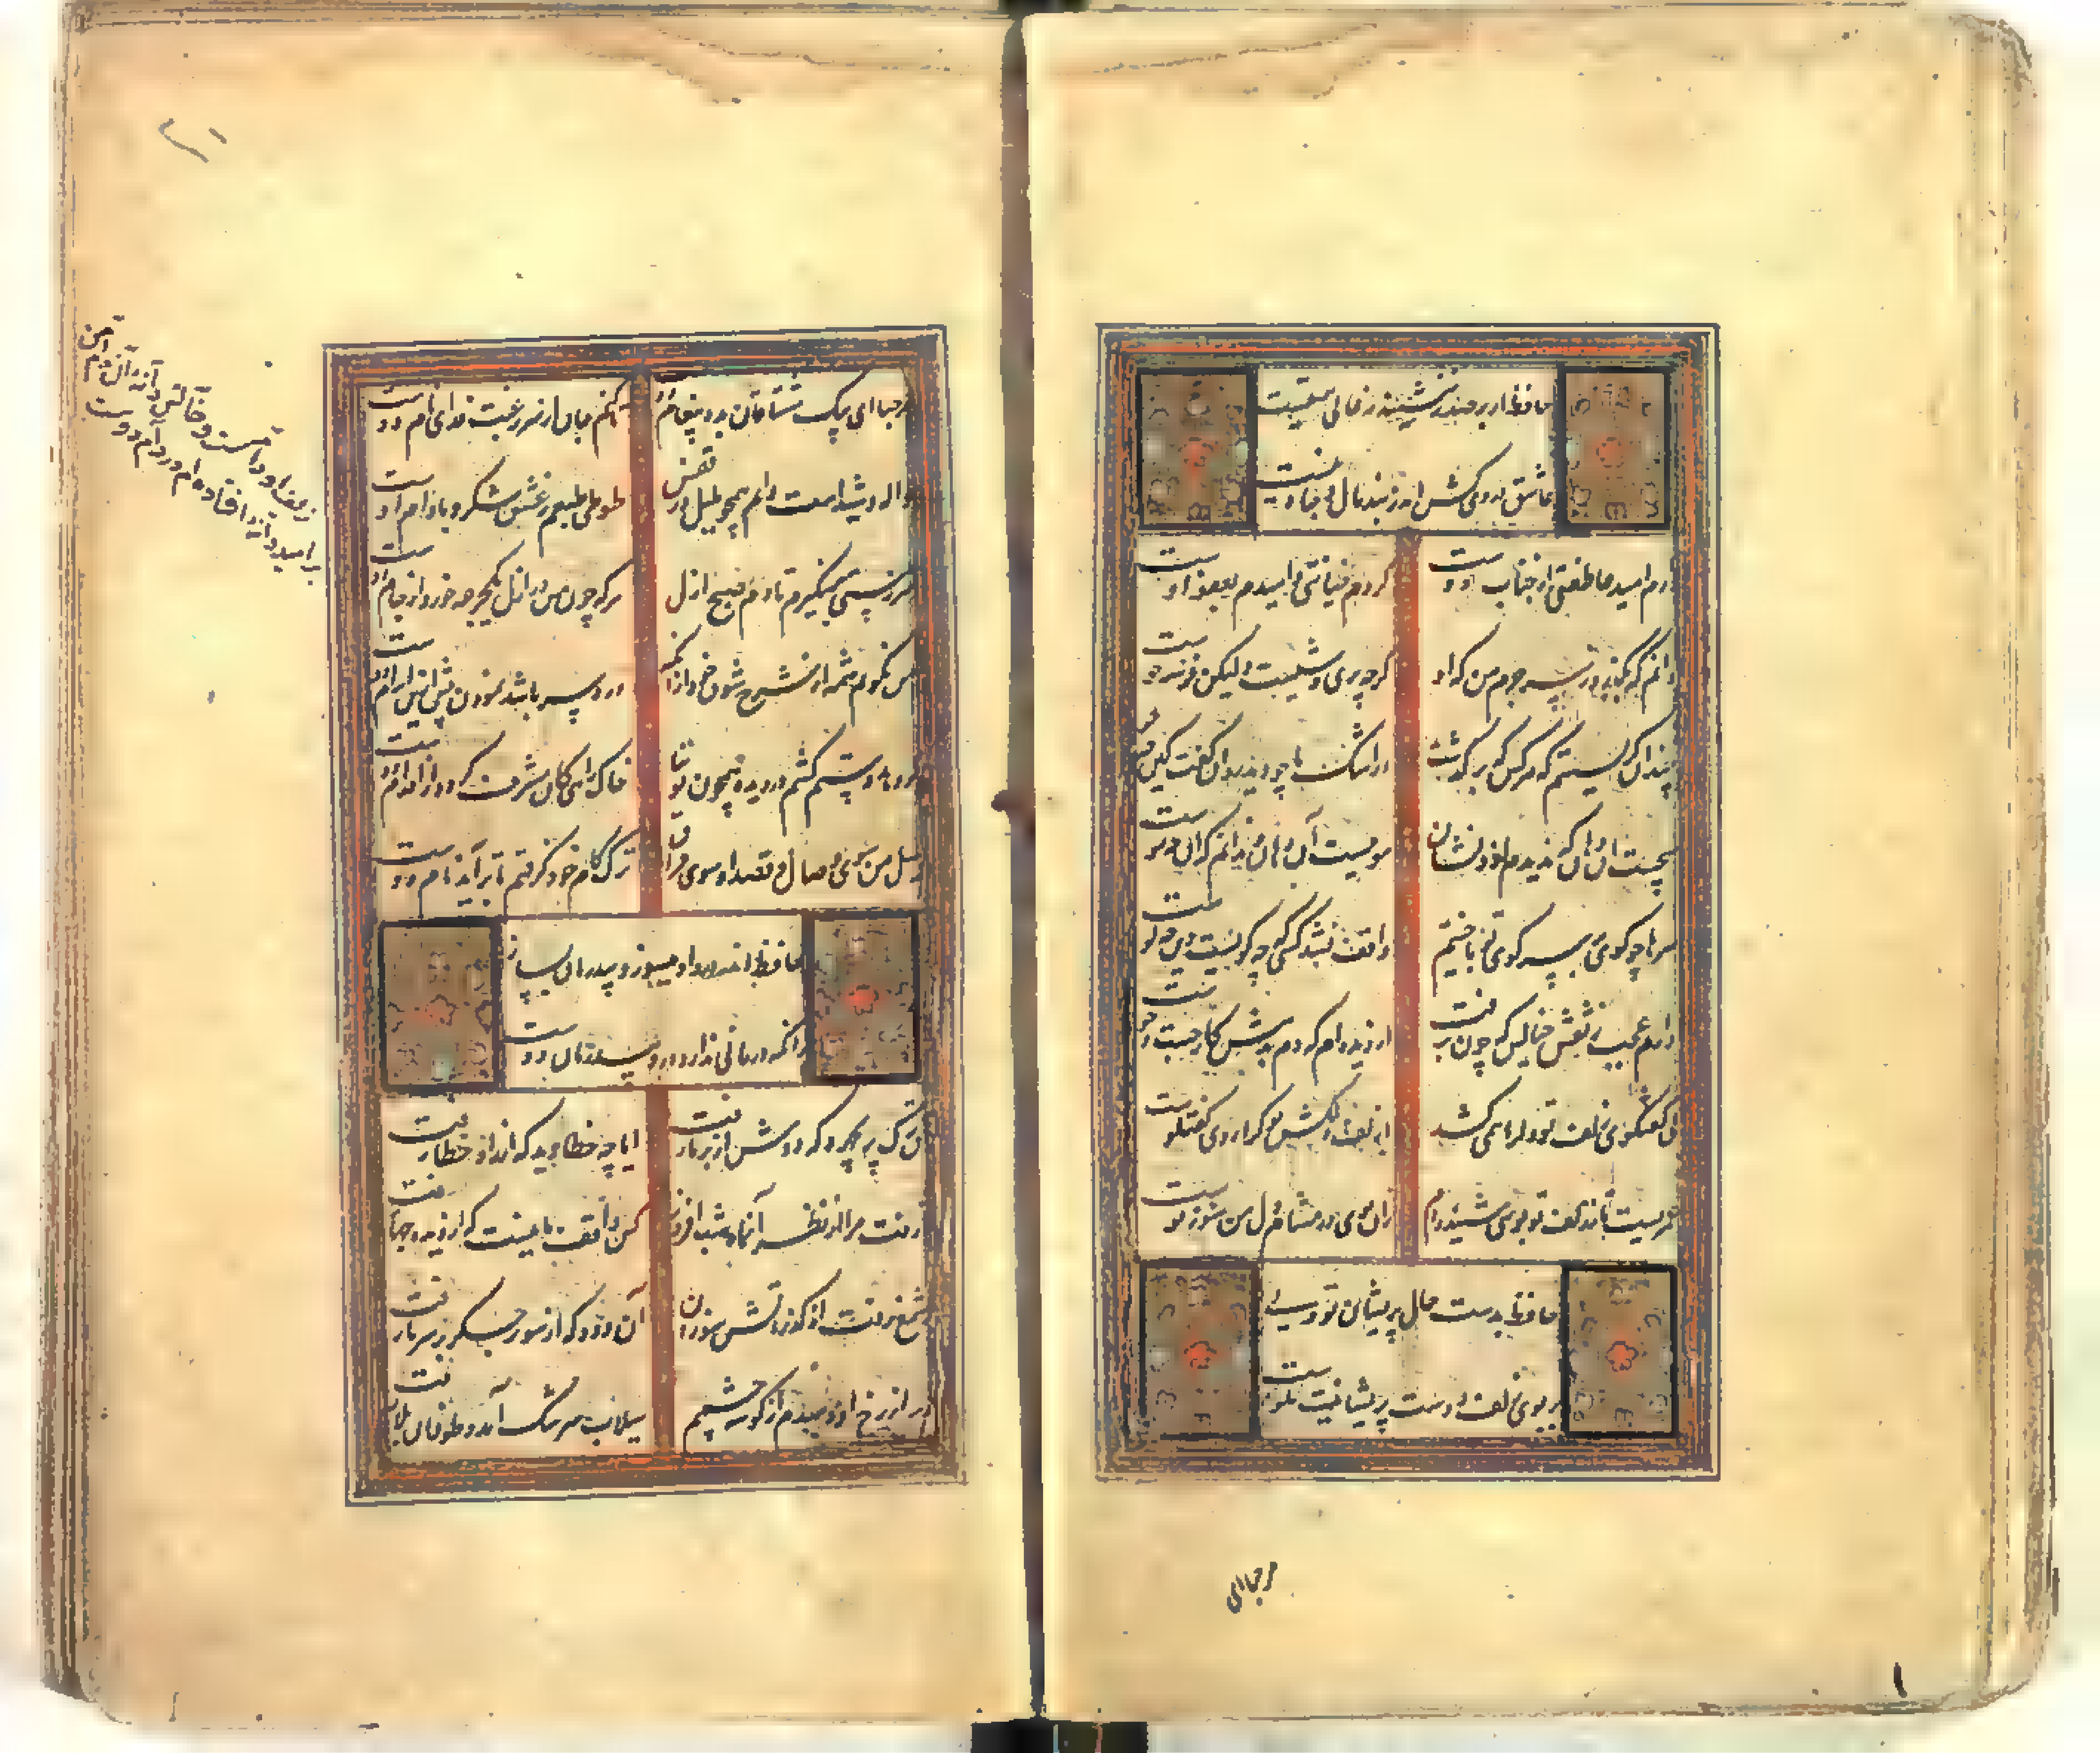 حافظ ار بر صدر ننشیند ز عالی همتیست
عاشق دردی کش اندر بند مال و جاه نیست
دارم امید عاطفتی از جناب دوست
کردم خیانتی و امیدم بعفو اوست
دانم که بگذرد ز سر جرم من که او
گرچه پریوشیست ولیکن فرشته خوست
چندان گریستم که هر کس که بر گذشت
در اشک ما چو دید روان گفت کین چه جوست
هیچست آن دهان که ندیدم ازو نشان
موییست آن میان و ندانم که آن چه موست
سرها چو گوی بر سر کوی تو باختیم
واقف نشد کسی که چه گویست و این چه کوست
دارم عجب ز نقش خیالش که چون نرفت
از دیده ام که دم بدمش کار شست و شوست
بی گفتگوی زلف تو دل را همی کشد
با زلف دلکش تو کرا روی گفتگوست
عمریست تا ز زلف تو بویی شنیده ام
زان بوی در مشام دل من هنوز بوست
حافظ بدست حال پریشان تو ولی
بر بوی زلف دوست پریشانیت نکوست
مرحبا ای
مرحبا ای پیک مشتاقان بده پیغام دوست
تا کنم جان از سر رغبت فدای نام دوست
واله و شیداست دایم همچو بلبل در قفس
طوطی طبعم ز عشق شکر و بادام دوست
سر ز مستی بر نگیرم تا دم صبح ازل
هر که چون من در ازل یکجرعه خورد از جام دوست
من نگویم شمه از شرح شوق خود از آنکه
درد سر باشد نمودن بیش ازین ابرام دوست
گر دهد دستم کشم در دیده همچون توتیا
خاک راهی کان مشرف گردد از اقدام دوست
میل من سوی وصال و قصد او سوی فراق
ترک کام خود گرفتم تا بر آید کام دوست
حافظ اندر درد او میسوز و بیدرمان بساز
زانکه درمانی ندارد درد بی درمان دوست
آن ترک پریچهره که دوش از بر ما رفت
ایا چه خطا دید که از راه خطا رفت
تا رفت مرا از نظر آن ماه شب افروز
کس واقف ما نیست که از دیده چها رفت
بر شمع نرفت از گذر آتش سوزان
آن دود که از سوز جگر بر سر ما رفت
دور از رخ او دمبدم از گوشه چشمم
سیلاب سرشک آمد و طوفان بلا رفت
زلف او دامست و خالش دانه آن دام و من
بر امید دانه افتاده ام در دام دوست